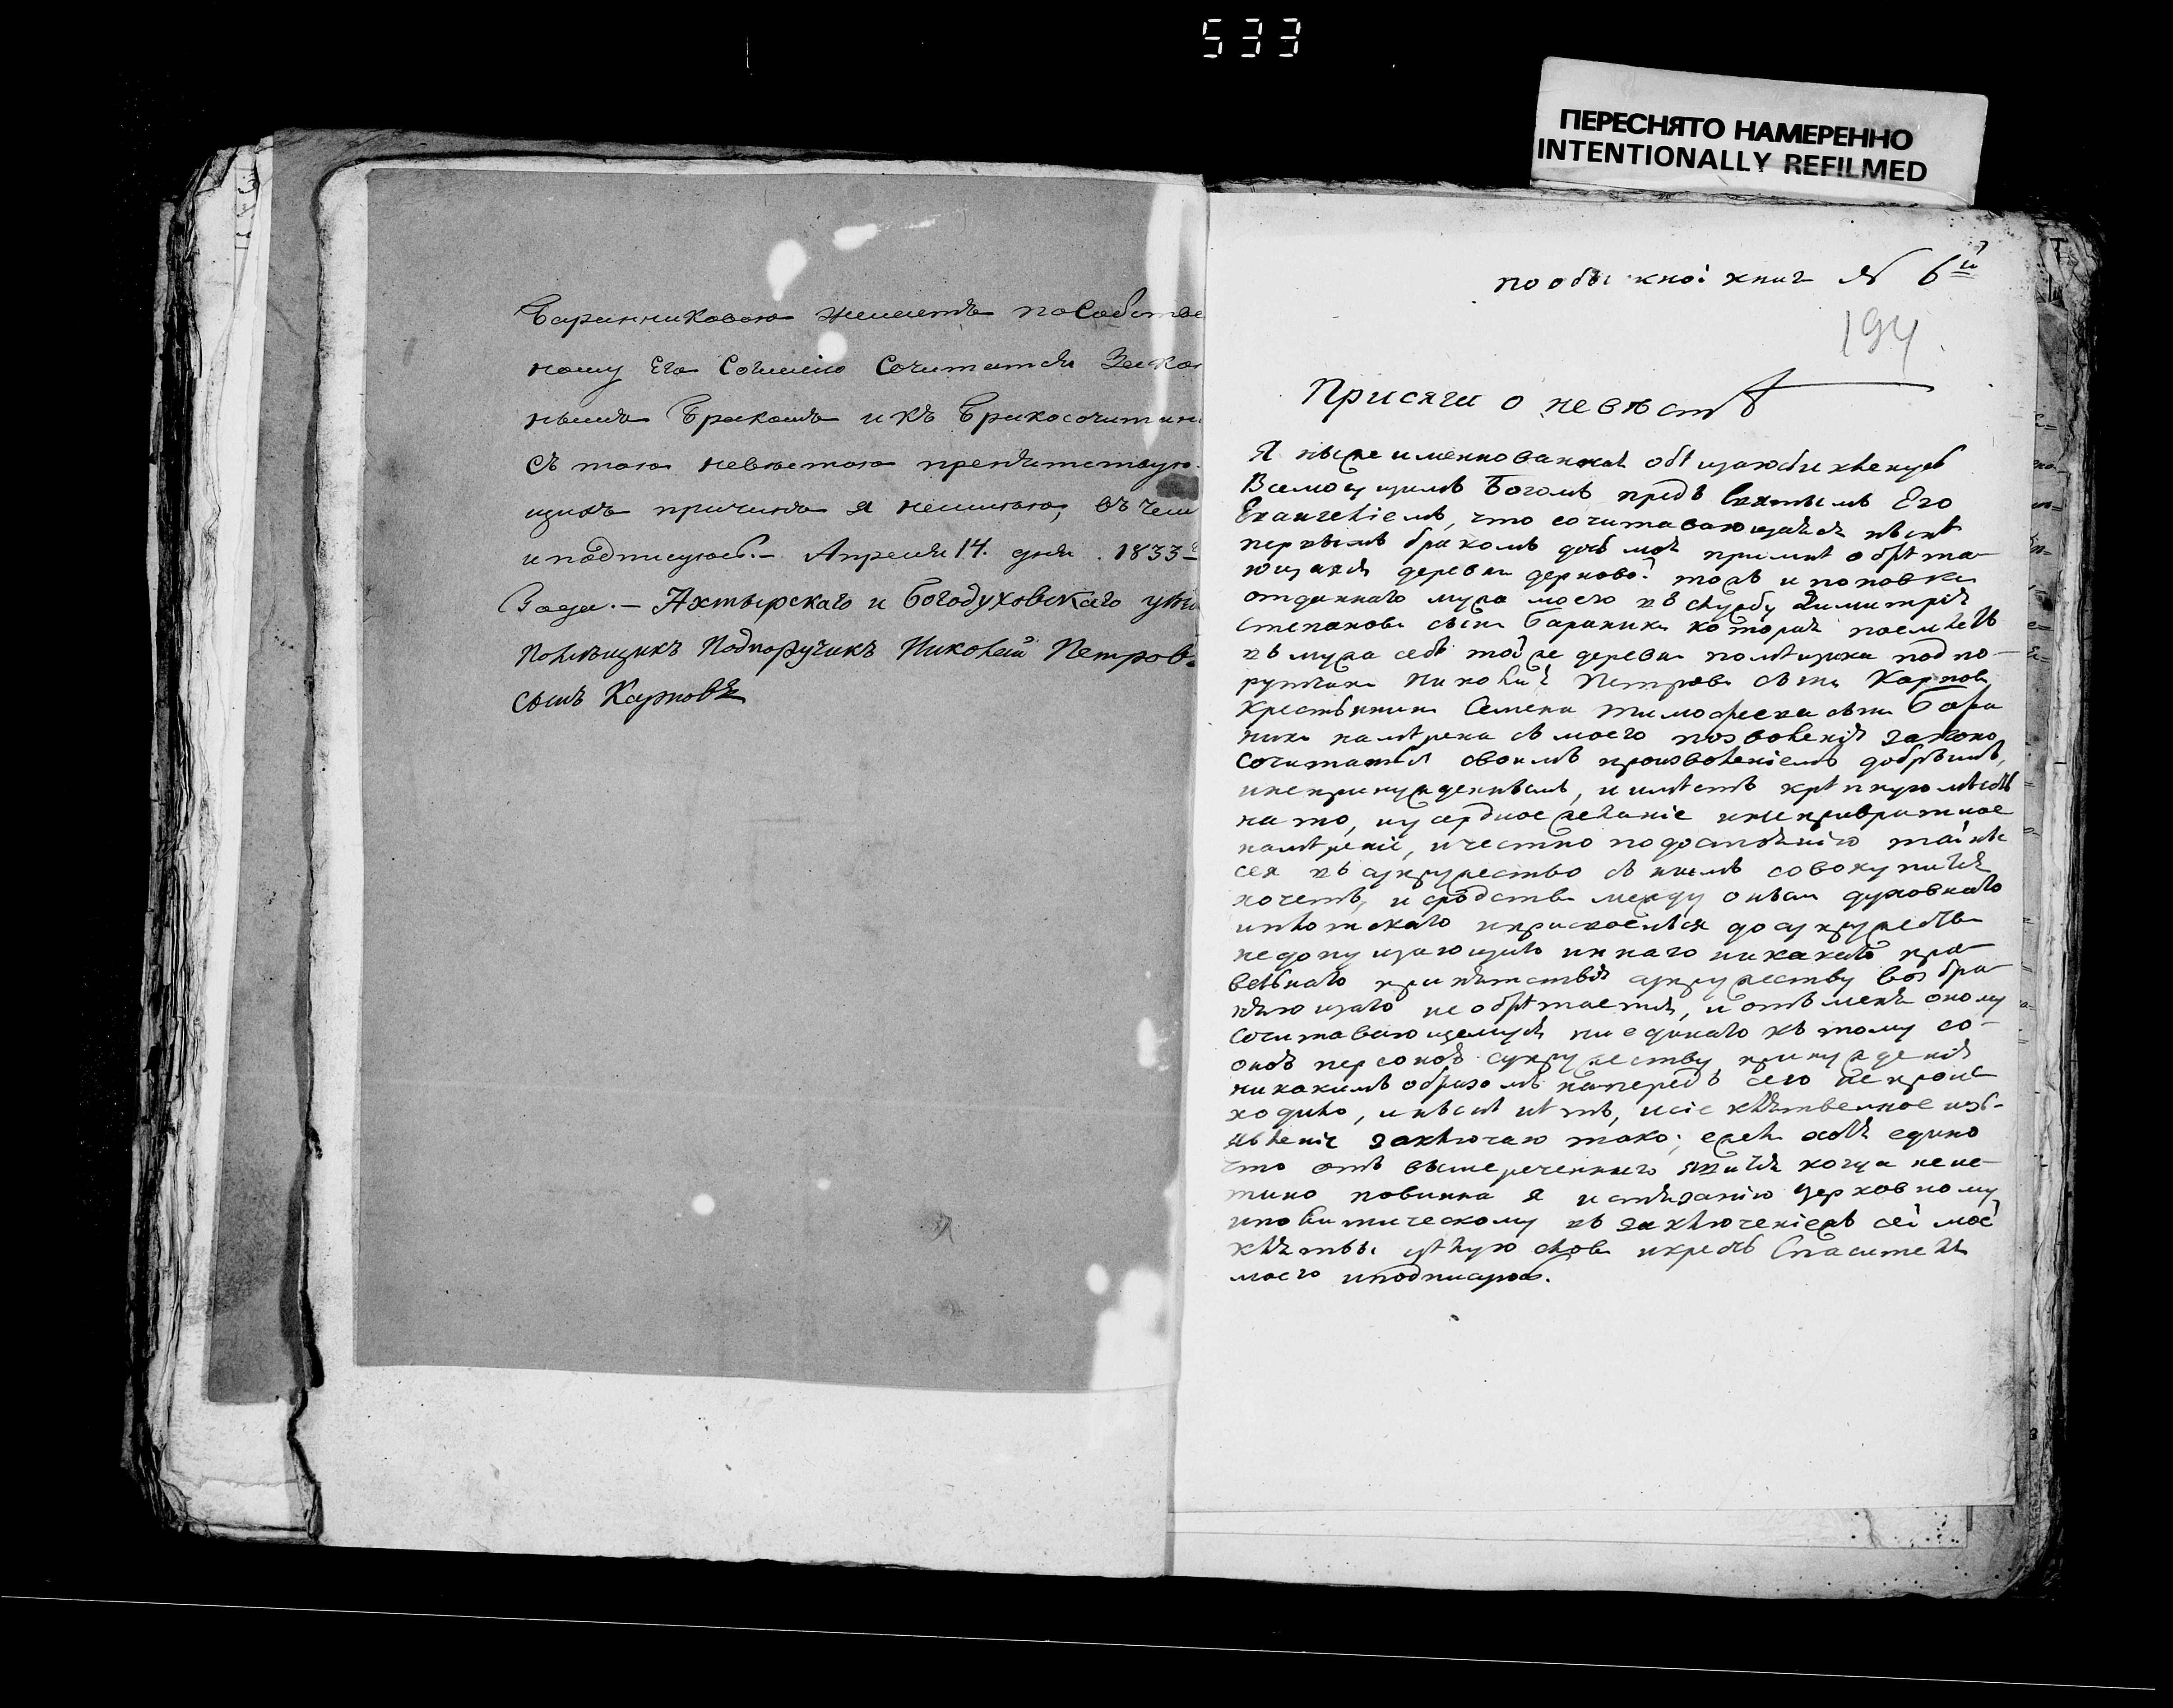 533
ПЕРЕСНЯТО НАМЕРЕННО
INTENTIONALLY REFILMED
Баранниковою желаетъ по Собстве
ному Его Согласію Сочитатся Закон
нымъ Бракомъ и къ Бракосочитан
съ тою невестою препятствую
щихъ причинъ я неимею, въ чем
и подписуюсь.- Апреля 14. дня 1833-
Года.- Ахтырскаго и Богодуховскаго уѣз
Помѣщикъ Подпоручикъ Николай Петровъ
сынъ Карповъ
по обыскной книгѣ № 6й
194
Присяги о невѣстѣ
Я ниже именнованная обѣщаюсь и кленусь
Всемогущимъ Богомъ предъ Святымъ Его
Евангеліемъ, что сочитавающаяся нынѣ
первымъ бракомъ дочь моя обрѣта
ющаяся деревни дерновой тожъ и поповки
отданнаго мужа моего въ службу Димитрія
степанова сына бараника которая поемлетъ
въ мужа себѣ той же деревни помѣщика подпо
ручика Николая Петрова сына Карпова
Крестьянина Семена тимофеева сына Бара
ника намѣрена съ моего позволенія законо
сочитатся своимъ произволеніемъ добрымъ,
и непринужденнымъ, и имѣетъ крѣпкую мысль
на то, и усердное желаніе и непривратное
намѣреніе, и честно по достоянію тайны
сея въ супружество съ нимъ совокупится
хочетъ, и сродства между оными духовнаго
и плотскаго и присвоенія до супружества
недопущающаго и инаго никакого пра
вельнаго препятствія супружеству возбра
няющаго не обрѣтается, и отъ меня оному
сочитавающемуся ни единаго къ тому со
онаго персонъ супружеству принужденія
никакимъ образомъ напередъ сего не проис
ходило, и нынѣ нѣтъ, и сіе клятвенное изъ-
явленіе заключаю тако; ежели хотя едино
что отъ вышереченнаго явится когда не ис
тино повинна я истязанію церковному
и политическому въ заключеніежъ сей моей
клятвы цѣлую слова и крестъ Спасителя
моего и подписуюсь.